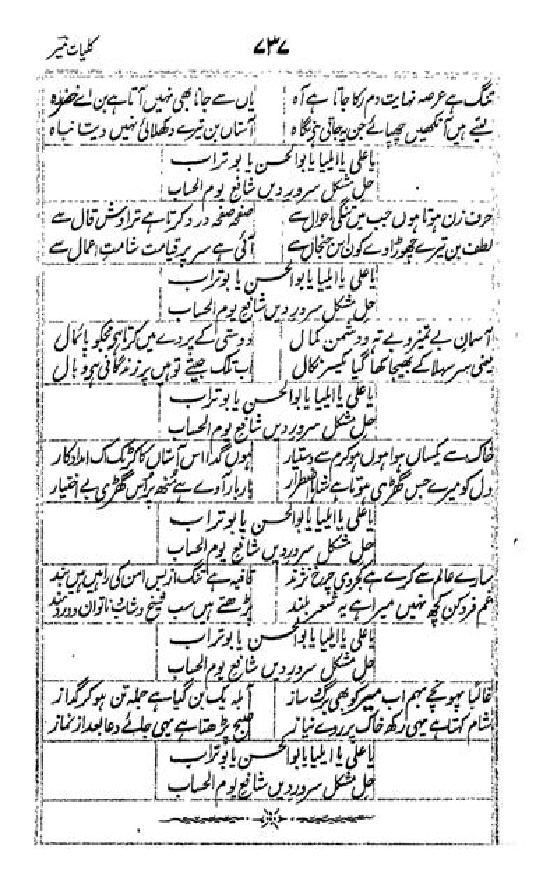 کلیات میر
۷۳۷
تنگ ہے عرصہ نہایت دم رکا جاتا ہے آہ یاں سے جانا بھی نہیں آتا ہے بن اے خضر راہ
لیتے ہیں آنکھیں چھپائے جن پہ جاتی ہے نگاہ آستاں بن تیرے دکھلائی نہیں دیتا پناہ
یا علی یا ایلیا یا بوالحسن یا بوتراب
حل مشکل سرور دیں شافع یوم الحساب
حرف زن ہوتا ہوں جب میں تنگی احوال سے صفحہ صفحہ درد کرتا ہے تراوش قال سے
لطف بن تیرے چھوڑاوے کون اس جنجال سے آئی ہے سر پر قیامت شامت اعمال سے
یا علی یا ایلیا یا بوالحسن یا بوتراب
حل مشکل سرور دیں شافع یوم الحساب
آسمان بے تمیز و بے تہ و دشمن کمال دوستی کے پردے میں کرتا ہی مجکو پائمال
یعنی سر سہلا کے بھیجا کھا گیا کیسر نکال اب تلک جیتے تو ہیں پر زندگانی ہی وبال
یا علی یا ایلیا یا بوالحسن یا بوتراب
حل مشکل سرور دیں شافع یوم الحساب
خاک سے یکساں ہوا ہوں ہو کرم سے دستیار ہوں گدا اس آستاں کا کر ٹک امداد کار
دل کو میرے جس گھڑی ہوتا ہے شاہا اضطرار بار بار آوے ہے منھ پر اس گھڑی بے اختیار
یا علی یا ایلیا یا بوالحسن یا بوتراب
حل مشکل سرور دیں شافع یوم الحساب
سارے عالم سے کرے ہے کجروی چرخ نژند قافیہ ہے تنگ از بس امن کی راہیں ہیں بند
غم فرو کن کچھ نہیں میرا ہے یہ شعر بلند پڑھتے ہیں سب ناتوان و دردمند
یا علی یا ایلیا یا بوالحسن یا بوتراب
حل مشکل سرور دیں شافع یوم الحساب
غالبا پہونچے بہم اب میر کو بھی برگ و ساز آبہ یک بن گیا ہے جملہ تن ہو کر گداز
شام کہتا ہے یہی رکھ خاک پر روے نیاز صبح پڑھتا ہے یہی جائے دعا بعد از نماز
یا علی یا ایلیا یا بوالحسن یا بوتراب
حل مشکل سرور دیں شافع یوم الحساب